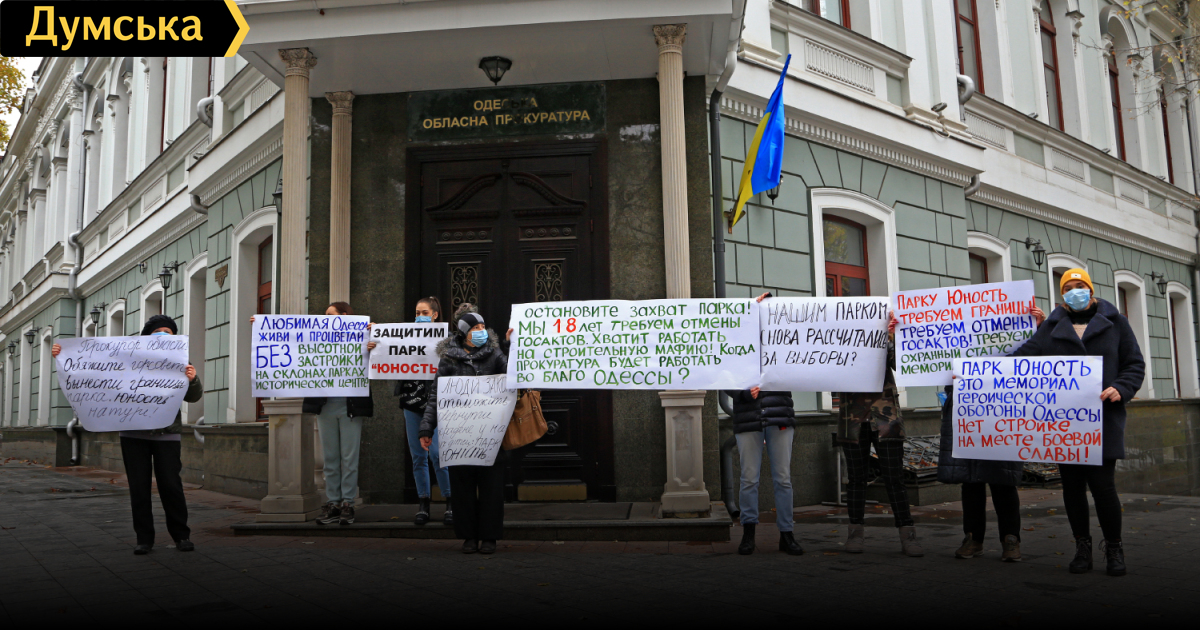 Думська
ОДЕСЬКА
ОБЛАСНА ПРОКУРАТУРА
Прокурор области
Обяжите горсовет
вынести границы
парка "Юность"
натуре!
ЛЮБИМАЯ ОДЕССА
ЖИВИ И ПРОЦВЕТАЙ
БЕЗ ВЫСОТНОЙ
ЗАСТРОЙКИ
НА СКЛОНАХ ПАРКАХ
ИСТОРИЧЕСКОМ ЦЕНТРЕ
ЗАЩИТИМ
ПАРК
"ЮНОСТЬ"
ЛЮДИ
ПАРК
ЮНОСТЬ
ОСТАНОВИТЕ ЗАХВАТ ПАРКА!
МЫ 18 ЛЕТ ТРЕБУЕМ ОТМЕНЫ
ГОСАКТОВ. ХВАТИТ РАБОТАТЬ
НА СТРОИТЕЛЬНУЮ МАФИЮ! КОГДА
ПРОКУРАТУРА БУДЕТ РАБОТАТЬ
ВО БЛАГО ОДЕССЫ?
НАШИМ ПАРКОМ
СНОВА РАССЧИТАЛИСЬ
ЗА ВЫБОРЫ?
ПАРКУ ЮНОСТЬ
ТРЕБУЕМ ГРАНИЦЫ
ТРЕБУЕМ ОТМЕНЫ
ГОСАКТОВ! ТРЕБУЕМ
ОХРАННЫЙ СТАТУС
МЕМОРИАЛ
ПАРК ЮНОСТЬ
ЭТО МЕМОРИАЛ
ГЕРОИЧЕСКОЙ
ОБОРОНЫ ОДЕССЫ
НЕТ СТРОЙКЕ
НА МЕСТЕ БОЕВОЙ
СЛАВЫ!